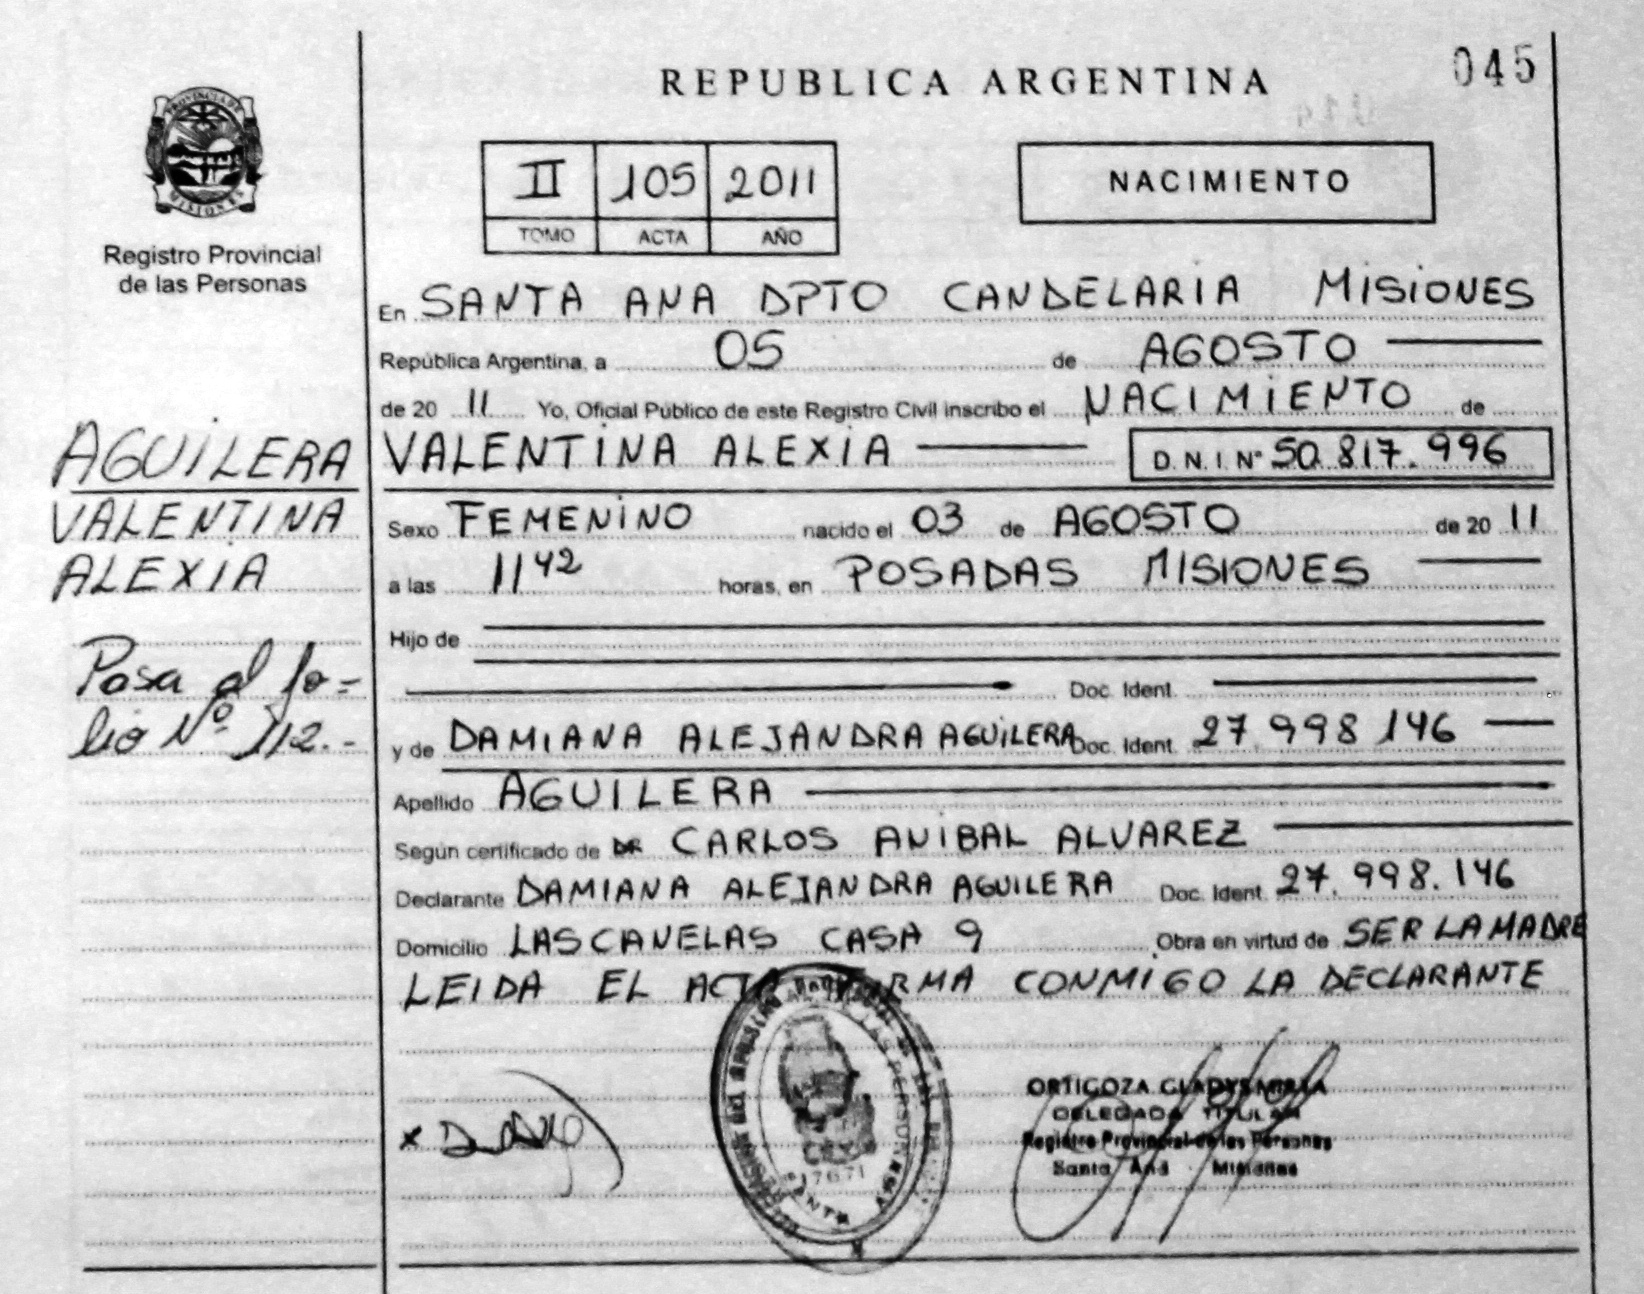 045
REPUBLICA ARGENTINA
PROVINCIA DE MISIONES
Registro Provincial
de las Personas
II 105 2011
TOMO ACTA AÑO
NACIMIENTO
En SANTA ANA DPTO CANDELARIA MISIONES
República Argentina, a 05 de AGOSTO
de 20 11 Yo, Oficial Público de este Registro Civil inscribo el NACIMIENTO de
VALENTINA ALEXIA D.N.I. Nº 50.817.996
AGUILERA
VALENTINA
ALEXIA
Sexo FEMENINO nacido el 03 de AGOSTO de 20 11
a las 11 42 horas, en POSADAS MISIONES
Hijo de
Doc. Ident.
Pasa al fo=
lio Nº 112.-
y de DAMIANA ALEJANDRA AGUILERA Doc. Ident. 27 998 146
Apellido AGUILERA
Según certificado de DR CARLOS ANIBAL ALVAREZ
Declarante DAMIANA ALEJANDRA AGUILERA Doc. Ident. 27.998.146
Domicilio LAS CANELAS CASA 9 Obra en virtud de SER LA MADRE
LEIDA EL ACTA FIRMA CONMIGO LA DECLARANTE
ORTIGOZA GLADYS MIRTA
DELEGADA TITULAR
Registro Provincial de las Personas
Santa Ana Misiones